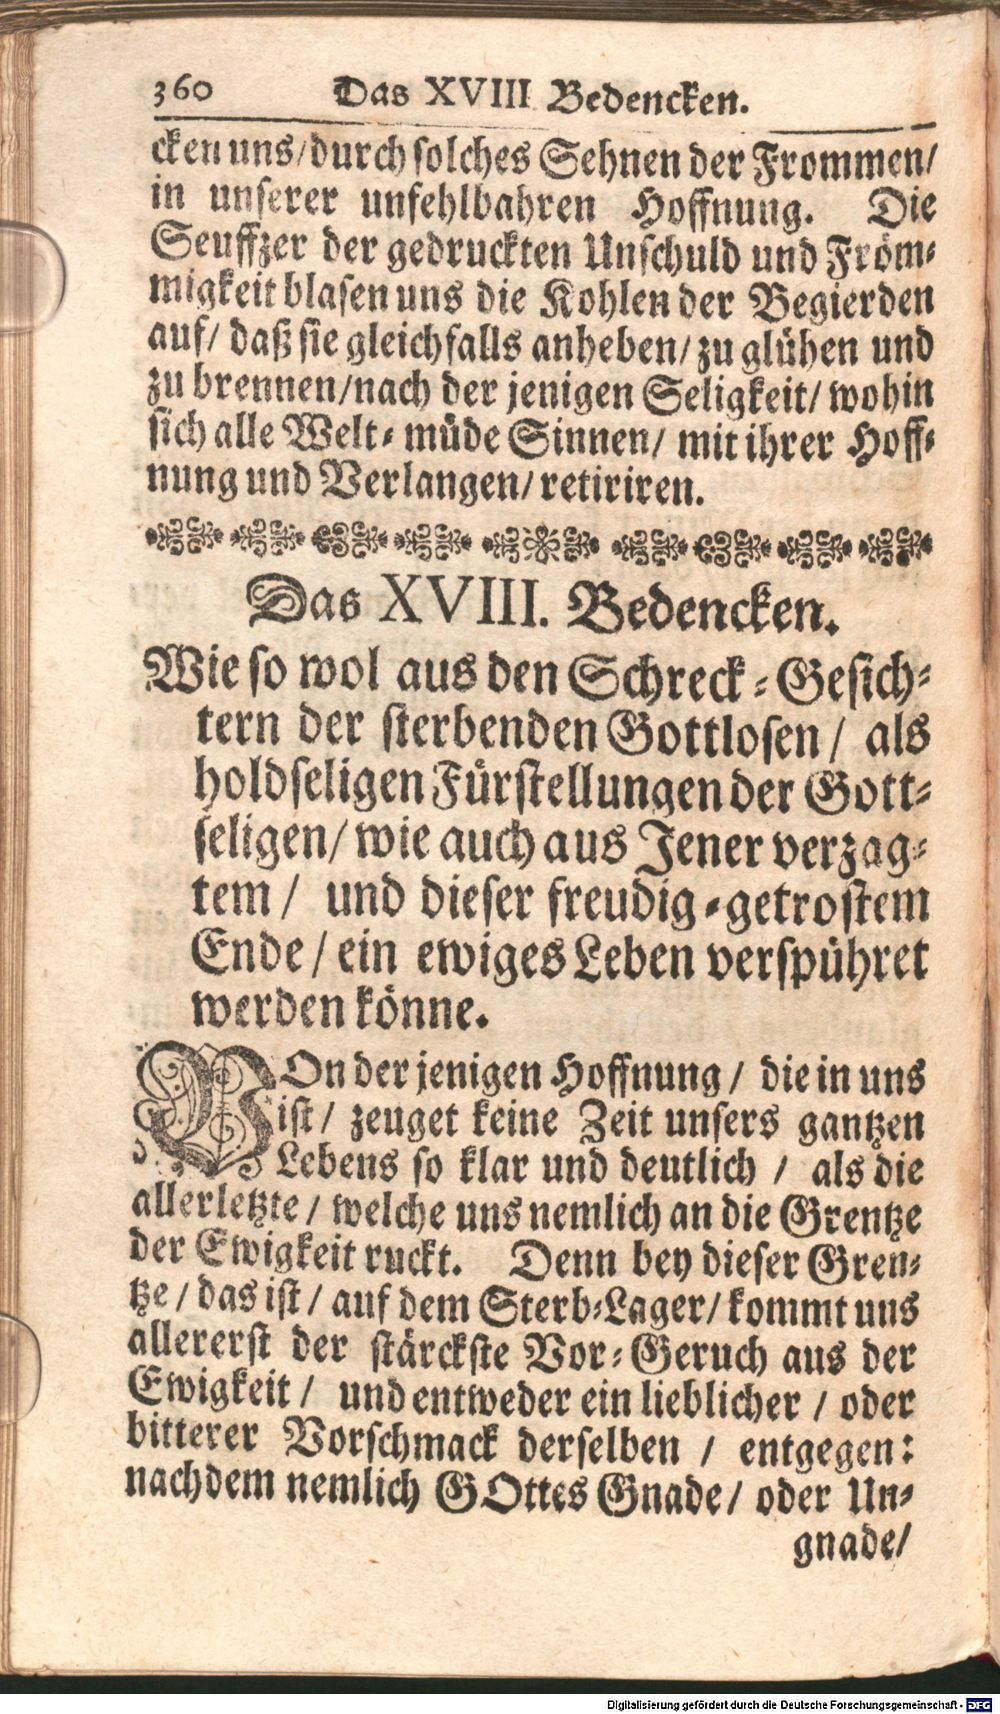 360 Das XVIII Bedencken.
cken uns/durch solches Sehnen der Frommen/
in unserer unfehlbahren Hoffnung. Die
Seuffzer der gedruckten Unschuld und Fröm-
migkeit blasen uns die Kohlen der Begierden
auf/ daß sie gleichfalls anheben/ zu glühen und
zu brennen/nach der jenigen Seligkeit/ wohin
sich alle Welt-müde Sinnen/ mit ihrer Hoff-
nung und Verlangen/ retiriren.
Das XVIII. Bedencken.
Wie so wol aus den Schreck-Gesich-
tern der sterbenden Gottlosen/ als
holdseligen Fürstellungen der Gott-
seligen/ wie auch aus Jener verzag-
tem/ und dieser freudig-getrostem
Ende/ ein ewiges Leben verspühret
werden könne.
VOn der jenigen Hoffnung/ die in uns
ist/ zeuget keine Zeit unsers gantzen
Lebens so klar und deutlich/ als die
allerletzte/ welche uns nemlich an die Grentze
der Ewigkeit ruckt. Denn bey dieser Gren-
tze/ das ist/ auf dem Sterb-Lager/ kommt uns
allererst der stärckste Vor-Geruch aus der
Ewigkeit/ und entweder ein lieblicher/ oder
bitterer Vorschmack derselben/ entgegen:
nachdem nemlich GOttes Gnade/ oder Un-
gnade/
Digitalisierung gefördert durch die Deutsche Forschungsgemeinschaft - DFG